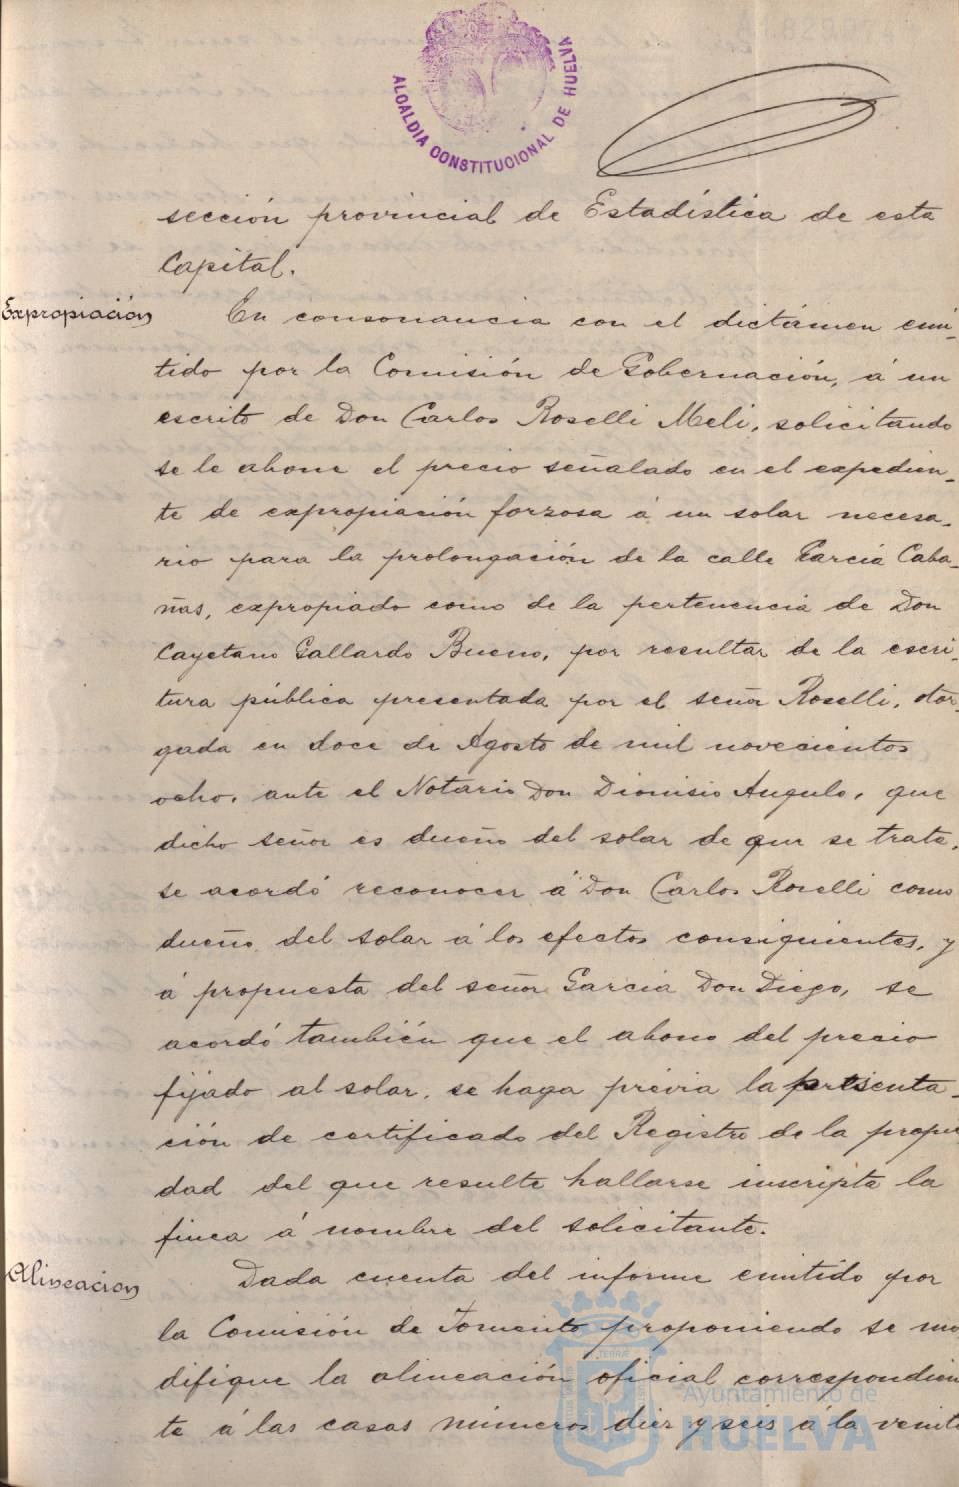 ALCALDIA CONSTITUCIONAL DE HUELVA
sección provincial de Estadística de esta
Capital.
Expropiación
En consonancia con el dictámen emi-
tido por la Comisión de Gobernación, á un
escrito de Don Carlos Roselli Meli, solicitando
se le abone el precio señalado en el expedien-
te de expropiación forzosa á un solar necesa-
rio para la prolongación de la calle García Caba-
ñas, expropiado como de la pertenencia de Don
Cayetano Gallardo Bueno, por resultar de la escri-
tura pública presentada por el señor Roselli, otor-
gada en doce de Agosto de mil novecientos
ocho, ante el Notario Don Dionisio Angulo, que
dicho señor es dueño del solar de que se trata,
se acordó reconocer á Don Carlos Roselli como
dueño del solar á los efectos consiguientes, y
á propuesta del señor García Don Diego, se
acordó también que el abono del precio
fijado al solar, se haga prévia la presenta-
ción de certificado del Registro de la propie
dad del que resulte hallarse inscripta la
finca á nombre del solicitante.
Alineacion
Dada cuenta del informe emitido por
la Comisión de Fomento proponiendo se mo
difique la alineación oficial correspondien
te á las casas números diez y seis á la veinte
Ayuntamiento de
HUELVA